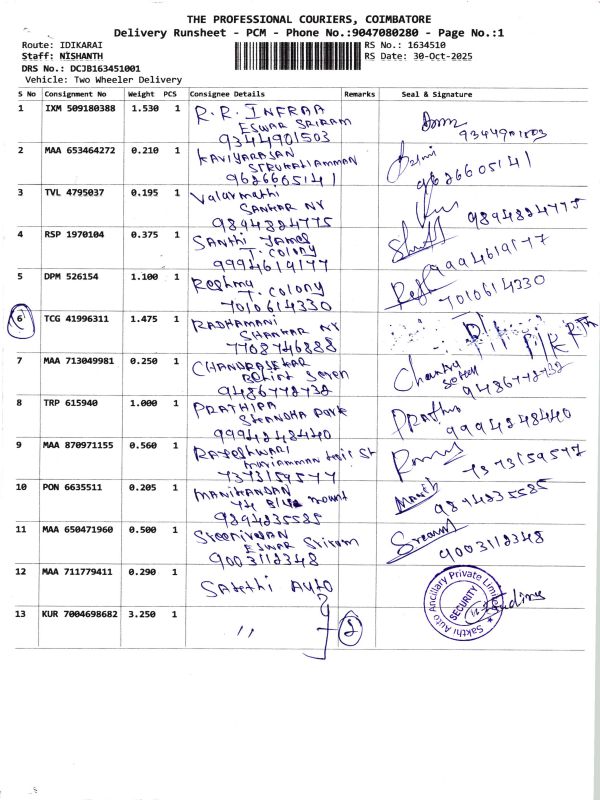 THE PROFESSIONAL COURIERS, COIMBATORE
Delivery Runsheet - PCM - Phone No.:9047080280 - Page No.:1
Route: IDIKARAI RS No.: 1634510
Staff: NISHANTH RS Date: 30-Oct-2025
DRS No.: DCJB163451001
Vehicle: Two Wheeler Delivery
S No Consignment No Weight PCS Consignee Details Remarks Seal & Signature
1 IXM 509180388 1.530 1 R.R. INFRAA
ESWAR SRIRAM
9344901503 9344901503
2 MAA 653464272 0.210 1 KAVIYARASAN
9626605141 9626605141
3 TVL 4795037 0.195 1 Valarmathi
SANKAR NR
9894824775 9894824775
4 RSP 1970104 0.375 1 SANTHI JAMES
T. COLONY
9994619177 9994619177
5 DPM 526154 1.100 1 Reshma
T. COLONY
7010614330 7010614330
6 TCG 41996311 1.475 1 RADHAMANI
SHANKAR NR
7708746888
7 MAA 713049981 0.250 1 CHANDRASEKAR
9486772732 9486772732
8 TRP 615940 1.000 1 PRATHIPA
SKANDHA Park
9994248440 9994248440
9 MAA 870971155 0.560 1 RAJESHWARI
mariamman kovil St
7373159577 7373159577
10 PON 6635511 0.205 1 MANIKANDAN
mount
9894235585 9894235585
11 MAA 650471960 0.500 1 Sreenivasan
ESWAR Sriram
9003112348 9003112348
12 MAA 711779411 0.290 1 SAKTHI AUTO
13 KUR 7004698682 3.250 1 "
2
Sakthi Auto Ancillary Private Limited
SECURITY